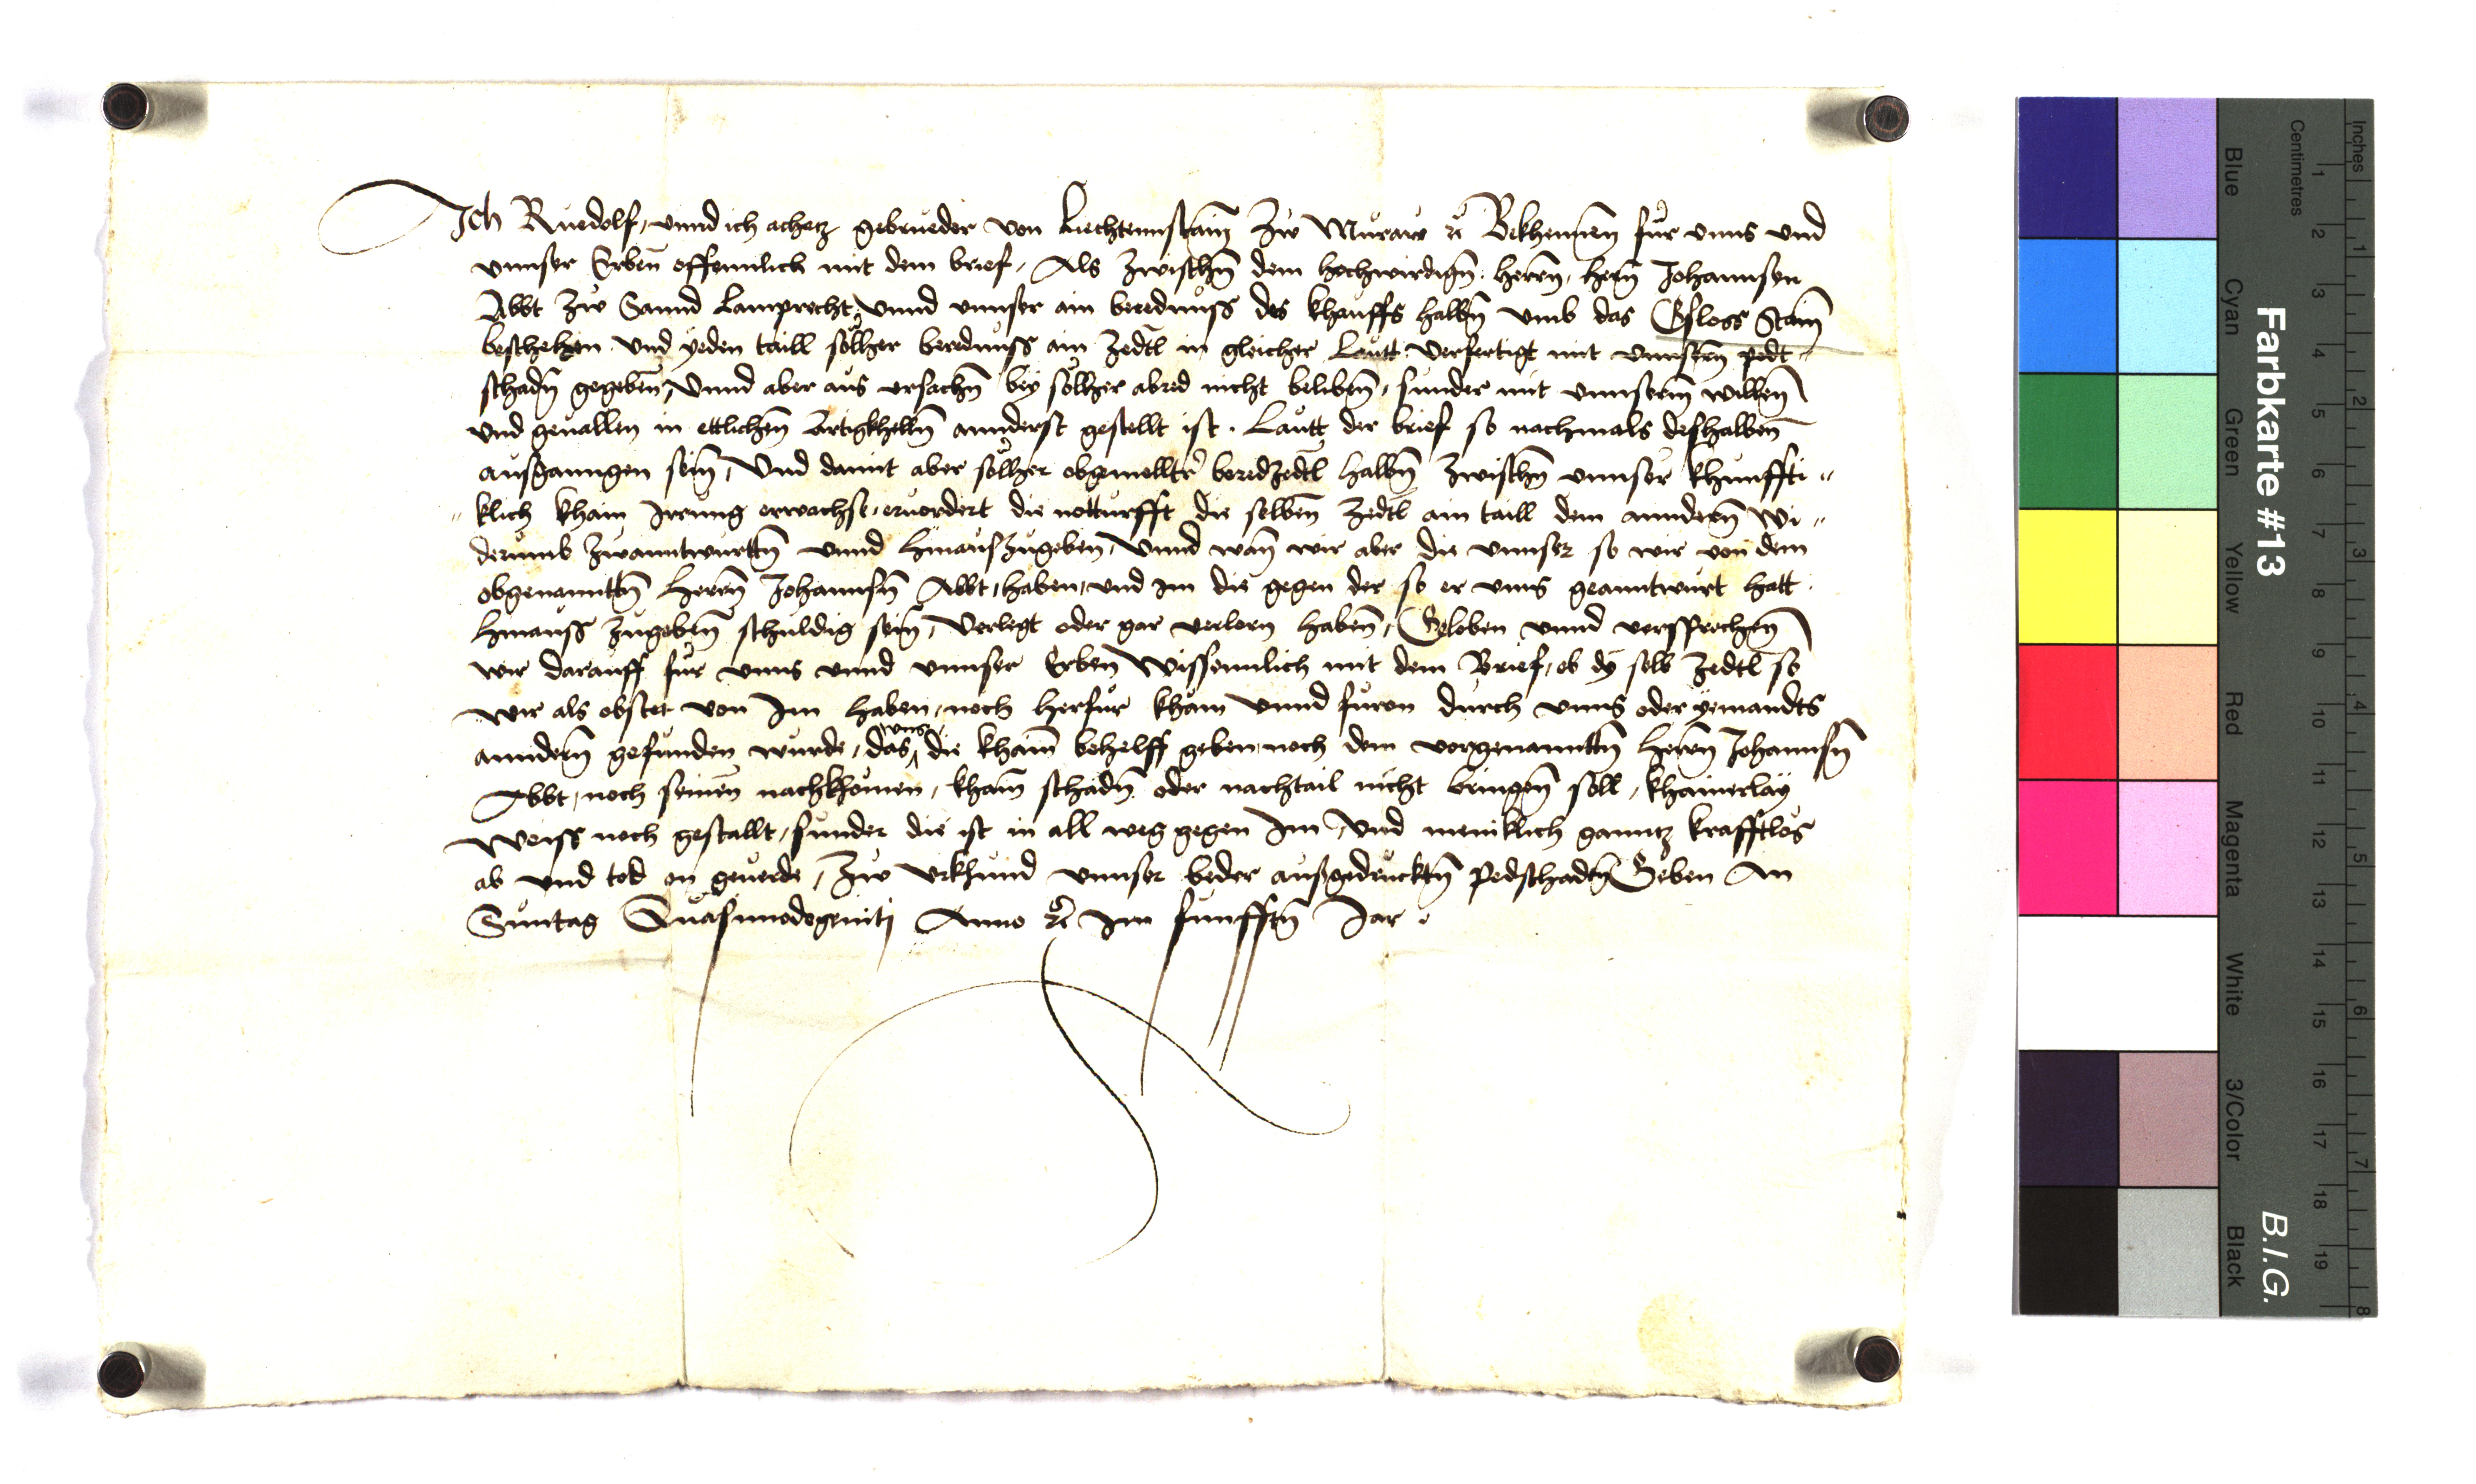 Ich Ruedolf, vnnd ich achacz gebrueder von Liechtennstain zw Muraw etc Bekhennen fur vnns vnd
vnnser Erben offennlich mit dem brief, Als zwischn dem hochwirdign herrn, hern Johannsen
Abbt zw Sannd Lamprecht, vnnd vnnser ain berednuss des khauffs halbn vmb das Gsloss Stain
beschehen vnd yeden taill solher berednuss ain zedtl in gleicher Lautt verfertigt mit vnnsern pedt
schadn gegeben, Vnnd aber aus vrsachn bey solher abred nicht beliben, sunder mit vnnserm willen
vnd geuallen in ettlichen Artigkhelln annderst gestellt ist. Lautt der brief so nachmals deshalben
ausganngen sein, Vnd damit aber solher obgemellter beredzedtl halbn zwischn vnnser khunffti
klich khain Irrung erwachse, eruordert die notturfft die selben zedtl ain taill dem anndern wi
derumb zwanntwurttn vnnd hinauszugeben, Vnnd wan wir aber die vnnser so wir von dem
obgenanntn herrn Johannsn Abbt, haben, vnd im die gegen der so er vnns geanntwurt hatt
hinauss zugeben schuldig sein, verlegt oder gar verlorn haben, Geloben vnnd versprechen
wir darauff fur vnns vnnd vnnser Erben Wissennlich mit dem Brief, ob dy selb zedtl so
wir als obstet von Im haben, noch herfur kham vnnd furon durch vnns oder yemandts
anndern gefunden wurde, das vnns die khain behelff geben noch dem vorgenanntn herrn Johannsn
Abbt, noch seinen nachkhomen, khain schadn oder nachtail nicht bringen soll, khainerlay
Weiss noch gestallt, sunder die ist in all weg gegen Im, vnd meniklich ganntz krafftlos
ab vnd tod on geuerde, zw vrkhund vnnser beder aufgedrucktn pedschadn Geben An
Suntag Quasimodogeniti Anno etc Im funfften Jar.
Farbkarte #13
B.I.G.
Inches
Centimetres
1 2 3 4 5 6 7 8
1 2 3 4 5 6 7 8 9 10 11 12 13 14 15 16 17 18 19
Blue
Cyan
Green
Yellow
Red
Magenta
White
3/Color
Black